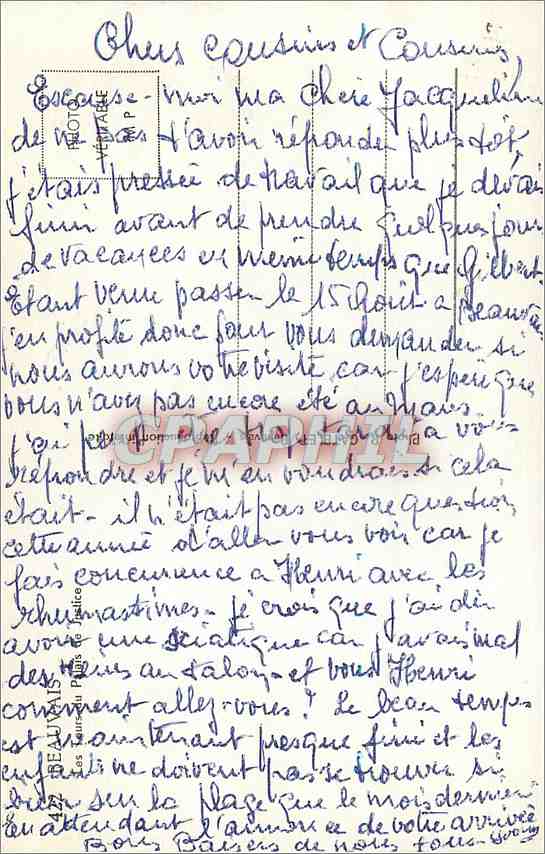 Chers cousins et Cousines,
Excuse-moi ma Chère Jacqueline
de ne pas t'avoir répondu plus tôt,
j'étais pressée de travail que je devais
finir avant de prendre quelques jours
de vacances en même temps que Gilbert.
Etant venue passer le 15 Août a Beauvais
j'en profite donc pour vous demander si
nous aurons votre visite car j'espère que
vous n'avez pas encore été au
j'ai tardé a vous
répondre et je m'en voudrais si cela
était - il n'était pas encore question
cette année d'aller vous voir car je
fais concurence a Henri avec les
rhumastimes - je crois que j'ai dû
avoir une sciatique car j'avais mal
des reins au talon - et vous Henri
comment allez-vous? Le beau temps
est maintenant presque fini et les
enfants ne doivent pas se trouver si
bien sur la plage que le mois dernier
En attendant l'annonce de votre arrivée
Bons Baisers de nous tous -
PHOTO
VÉRITABLE
M P
477 BEAUVAIS
Les Tours du Palais de Justice
CPAPHIL